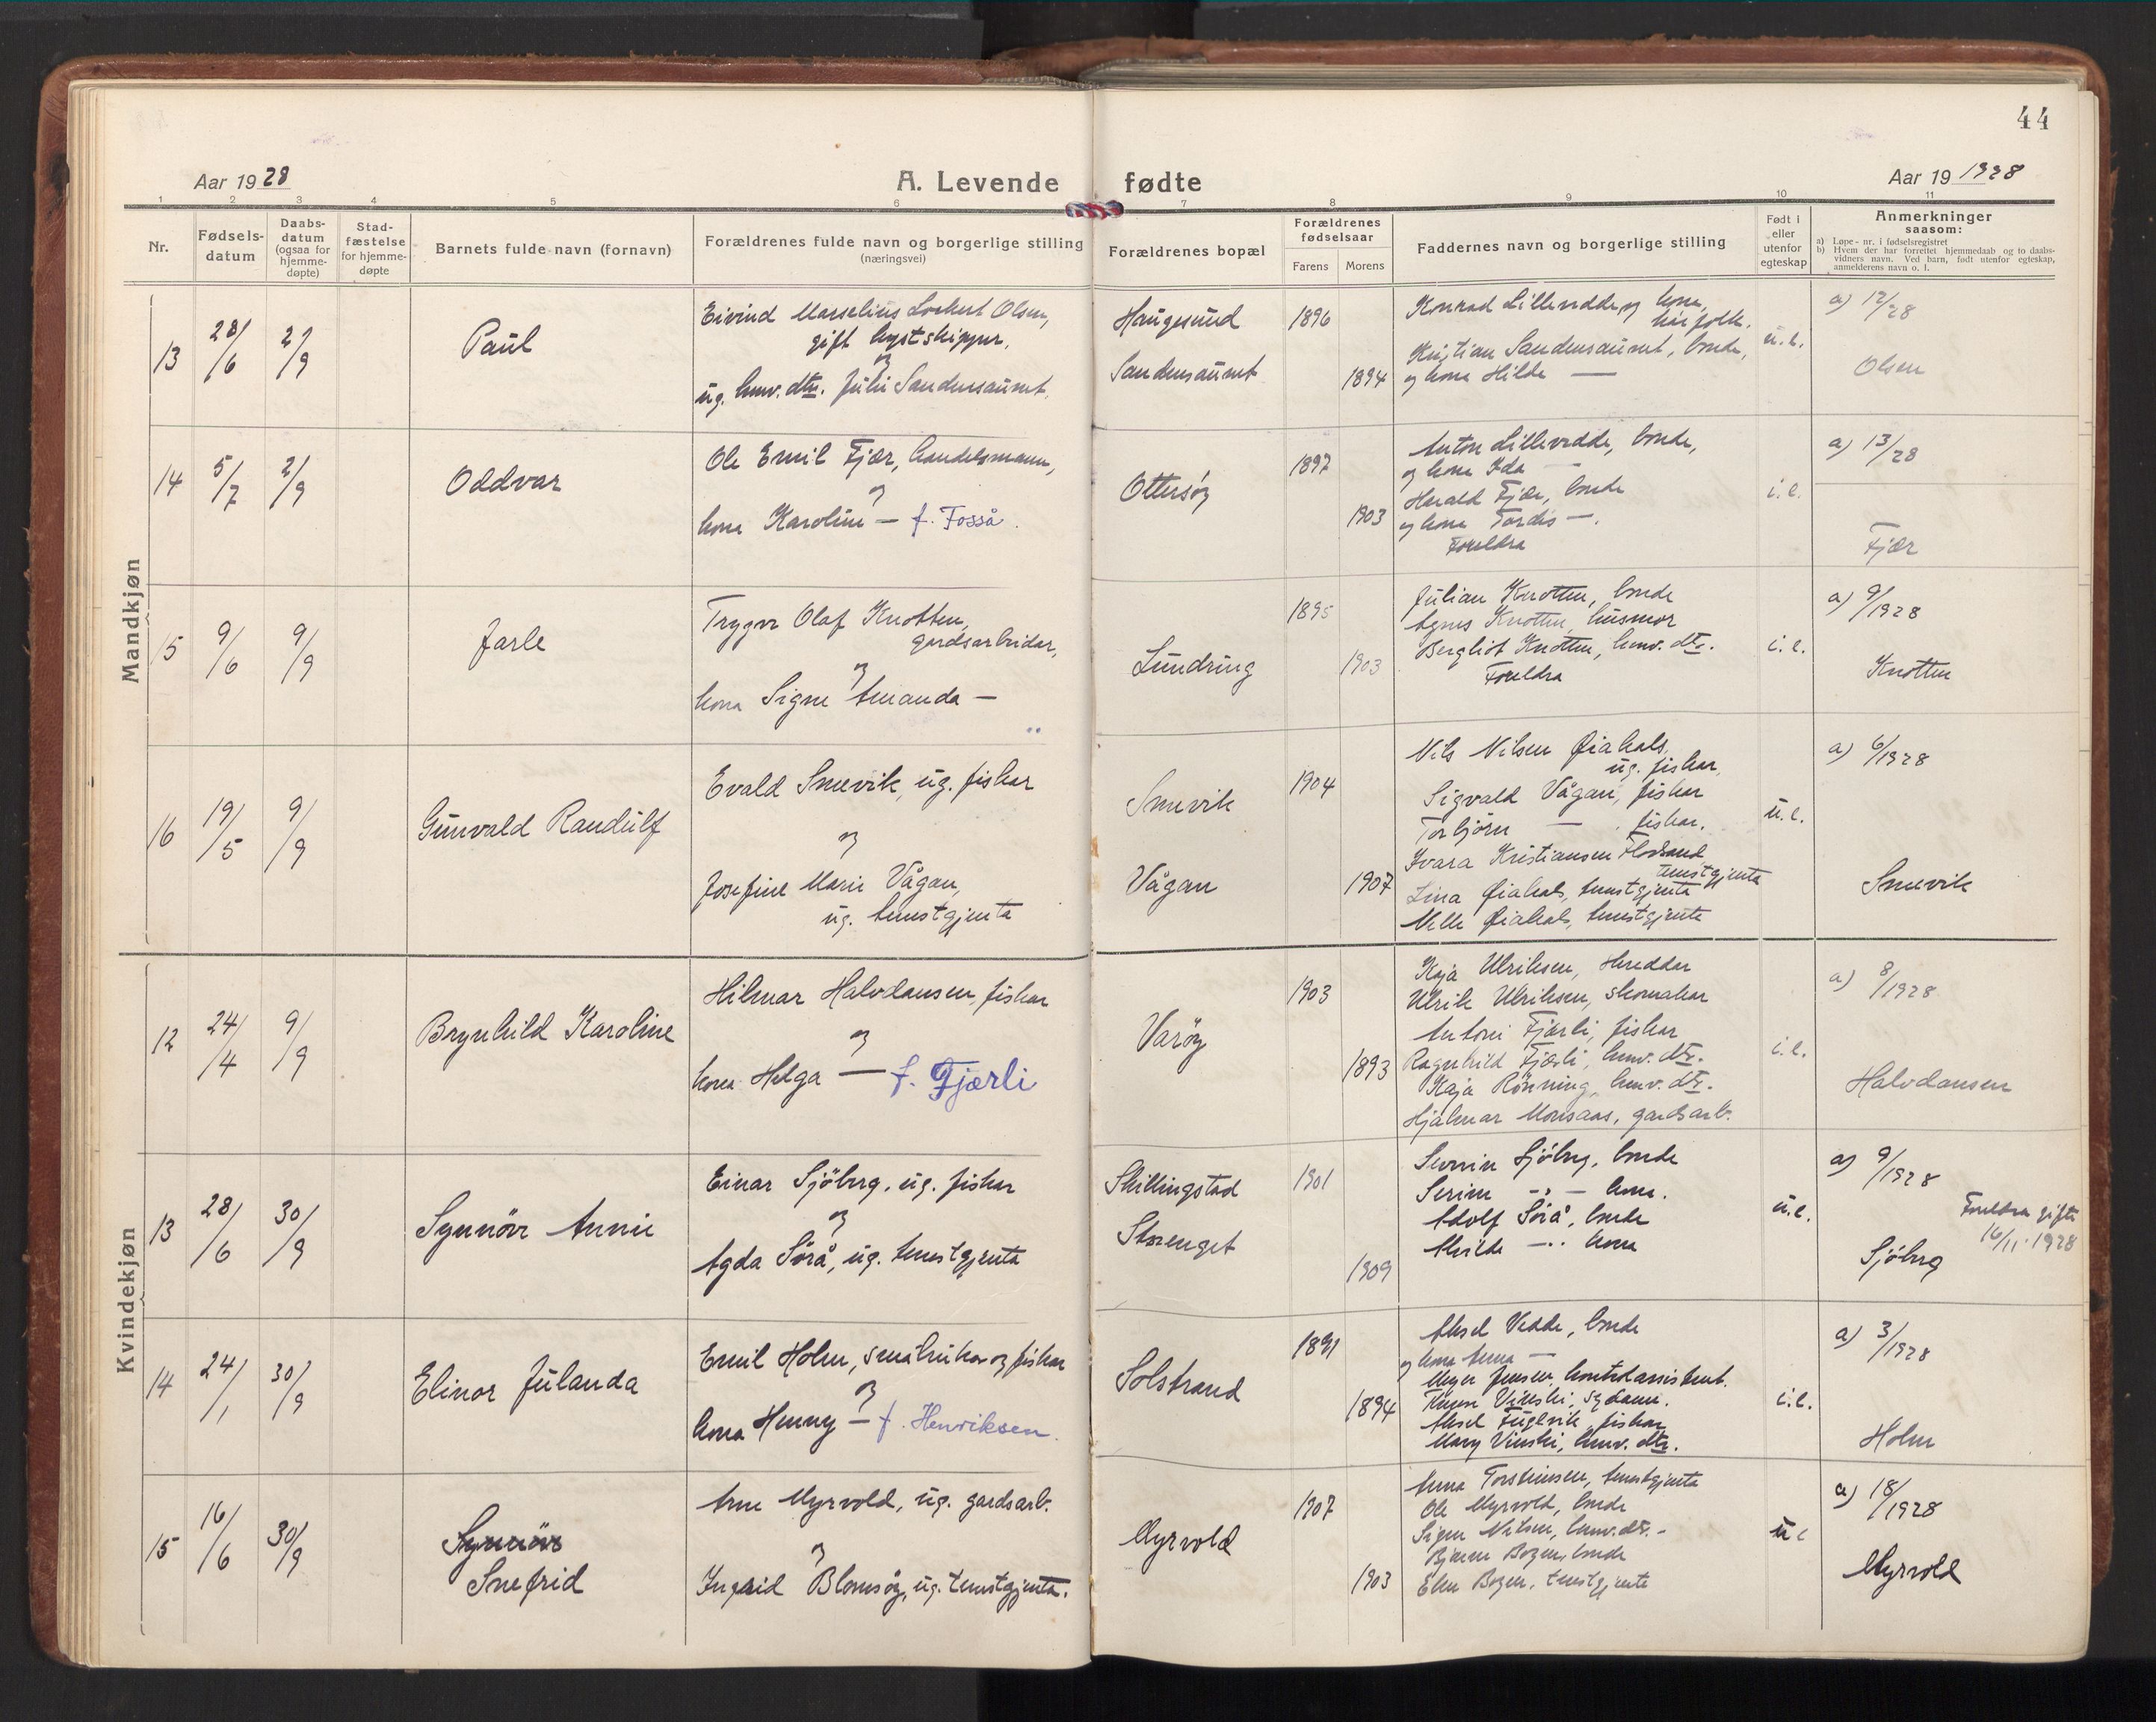 44
Aar 19 28
A. Levende fødte
Aar 19 1928
1 2 3 4 5 6 7 8 9 10 11
Nr.
Fødsels-
datum
Daabs-
datum
(ogsaa for
hjemme-
døpte)
Stad-
fæstelse
for hjemme-
døpte
Barnets fulde navn (fornavn)
Forældrenes fulde navn og borgerlige stilling
(næringsvei)
Forældrenes bopæl
Forældrenes
fødselsaar
Farens Morens
Faddernes navn og borgerlige stilling
Født i
eller
utenfor
egteskap
Anmerkninger
saasom:
a) Løpe-nr. i fødselsregistret
b) Hvem der har forrettet hjemmedaab og to daabs-
vidners navn. Ved barn, født utenfor egteskap,
anmelderens navn o. l.
Mandkjøn
13 28/6 2/9
Paul
Eivind Marselius Olsen,
gift
og
ug. heimv. dtr. Julie Sandersaunet.
Haugesund
Sandersaunet
1896
1894
Konrad Lilleredde og kona,
Kristian Sandersaunet, bonde,
og kona Hilde —
u.e.
a) 12/28
Olsen
14 5/7 2/9
Oddvar
Ole Emil Fjær, handelsmann,
og
kona Karoline — f. Fosså.
Ottersøy
1897
1903
Anton Lilleredde, bonde,
og kona Ida —
Harald Fjær, bonde
og kona Tordis —.
Foreldra
i.e.
a) 13/28
Fjær
15 9/6 9/9
Jarle
Trygve Olaf Knotten,
gardsarbeidar,
og
kona Signe Amanda —
Lundring
1895
1903
Julian Knotten, bonde
Agnes Knotten, husmor
Bergliot Knotten, heimv. dtr.
Foreldra
i.e.
a) 9/1928
Knotten
16 19/5 9/9
Gunvald Randulf
Evald Smevik, ug. fiskar
og
Josefine Marie Vågan,
ug. tenestgjenta
Smevik
Vågan
1904
1907
Nils Nilsen Øiahals,
ug. fiskar,
Sigvald Vågan, fiskar
Torbjörn — fiskar.
Ivara Kristiansen
tenestgjenta
Lina Øiahals, tenestgjenta
Øiahals, tenestgjenta
u.e.
a) 6/1928
Smevik
Kvindekjøn
12 24/4 9/9
Brynhild Karoline
Hilmar Halvdansen, fiskar
og
kona Helga — f. Fjærli
Varöy
1903
1893
Kaja Ulriksen,
Ulrik Ulriksen, skomakar
Antoni Fjærli, fiskar
Ragnhild Fjærli, heimv. dtr.
Kaja Rönning, heimv. dtr.
Hjalmar Monsaas, gardsarb.
i.e.
a) 8/1928
Halvdansen
13 28/6 30/9
Synnöve Annie
Einar Sjöberg, ug. fiskar
og
Agda Sörå, ug. tenestgjenta
Skillingstad
Storenget
1901
1909
Severin Sjöberg, bonde
Serine —"— kona.
Adolf Sörå, bonde
Alvilde —.. kona
u.e.
a) 9/1928
Foreldra gifte
16/11.1928
Sjöberg
14 24/1 30/9
Elinor Julanda
Emil Holm, småbrukar og fiskar
og
kona Henny — f. Henriksen.
Solstrand
1891
1894
Aksel Vedde, bonde
og kona Anna —
Meyer Jensen, kontrolassistent.
sydame.
Aksel Fuglvik, fiskar
Mary heimv. dtr.
i.e.
a) 3/1928
Holm
15 16/6 30/9
Synnöve
Snefrid
Arne Myrvold, ug. gardsarb.
og
Ingrid Blomsöy, ug. tenestgjenta.
Myrvold
1907
1903
Anna Torsteinsen, tenestgjenta
Ole Myrvold, bonde
Signe Nilsen, heimv. dtr. -
Bjarne Bogen, bonde
Ellen Bogen, tenestgjente
u e
a) 18/1928
Myrvold